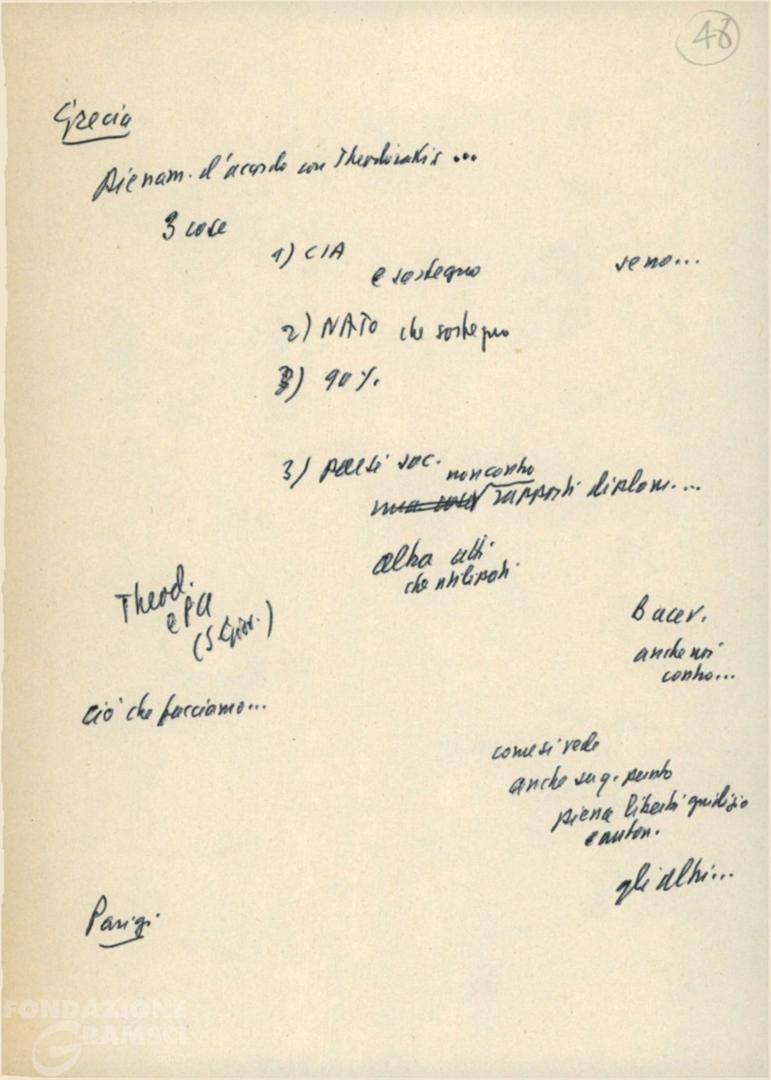 48
Grecia
pienam. d'accordo con Theodorakis...
3 cose
1) CIA
e sostegno se no...
2) NATO che sostegno
3) 90%
3) paesi soc.
non contro
rapporti diplom....
altra atti
che utilizzati
Theod.
e PCI
(S Gior.)
B acer.
anche noi
contro...
ciò che facciamo...
come si vede
anche su q. punto
piena libertà giudizio
e auton.
gli altri...
Parigi
FONDAZIONE
GRAMSCI